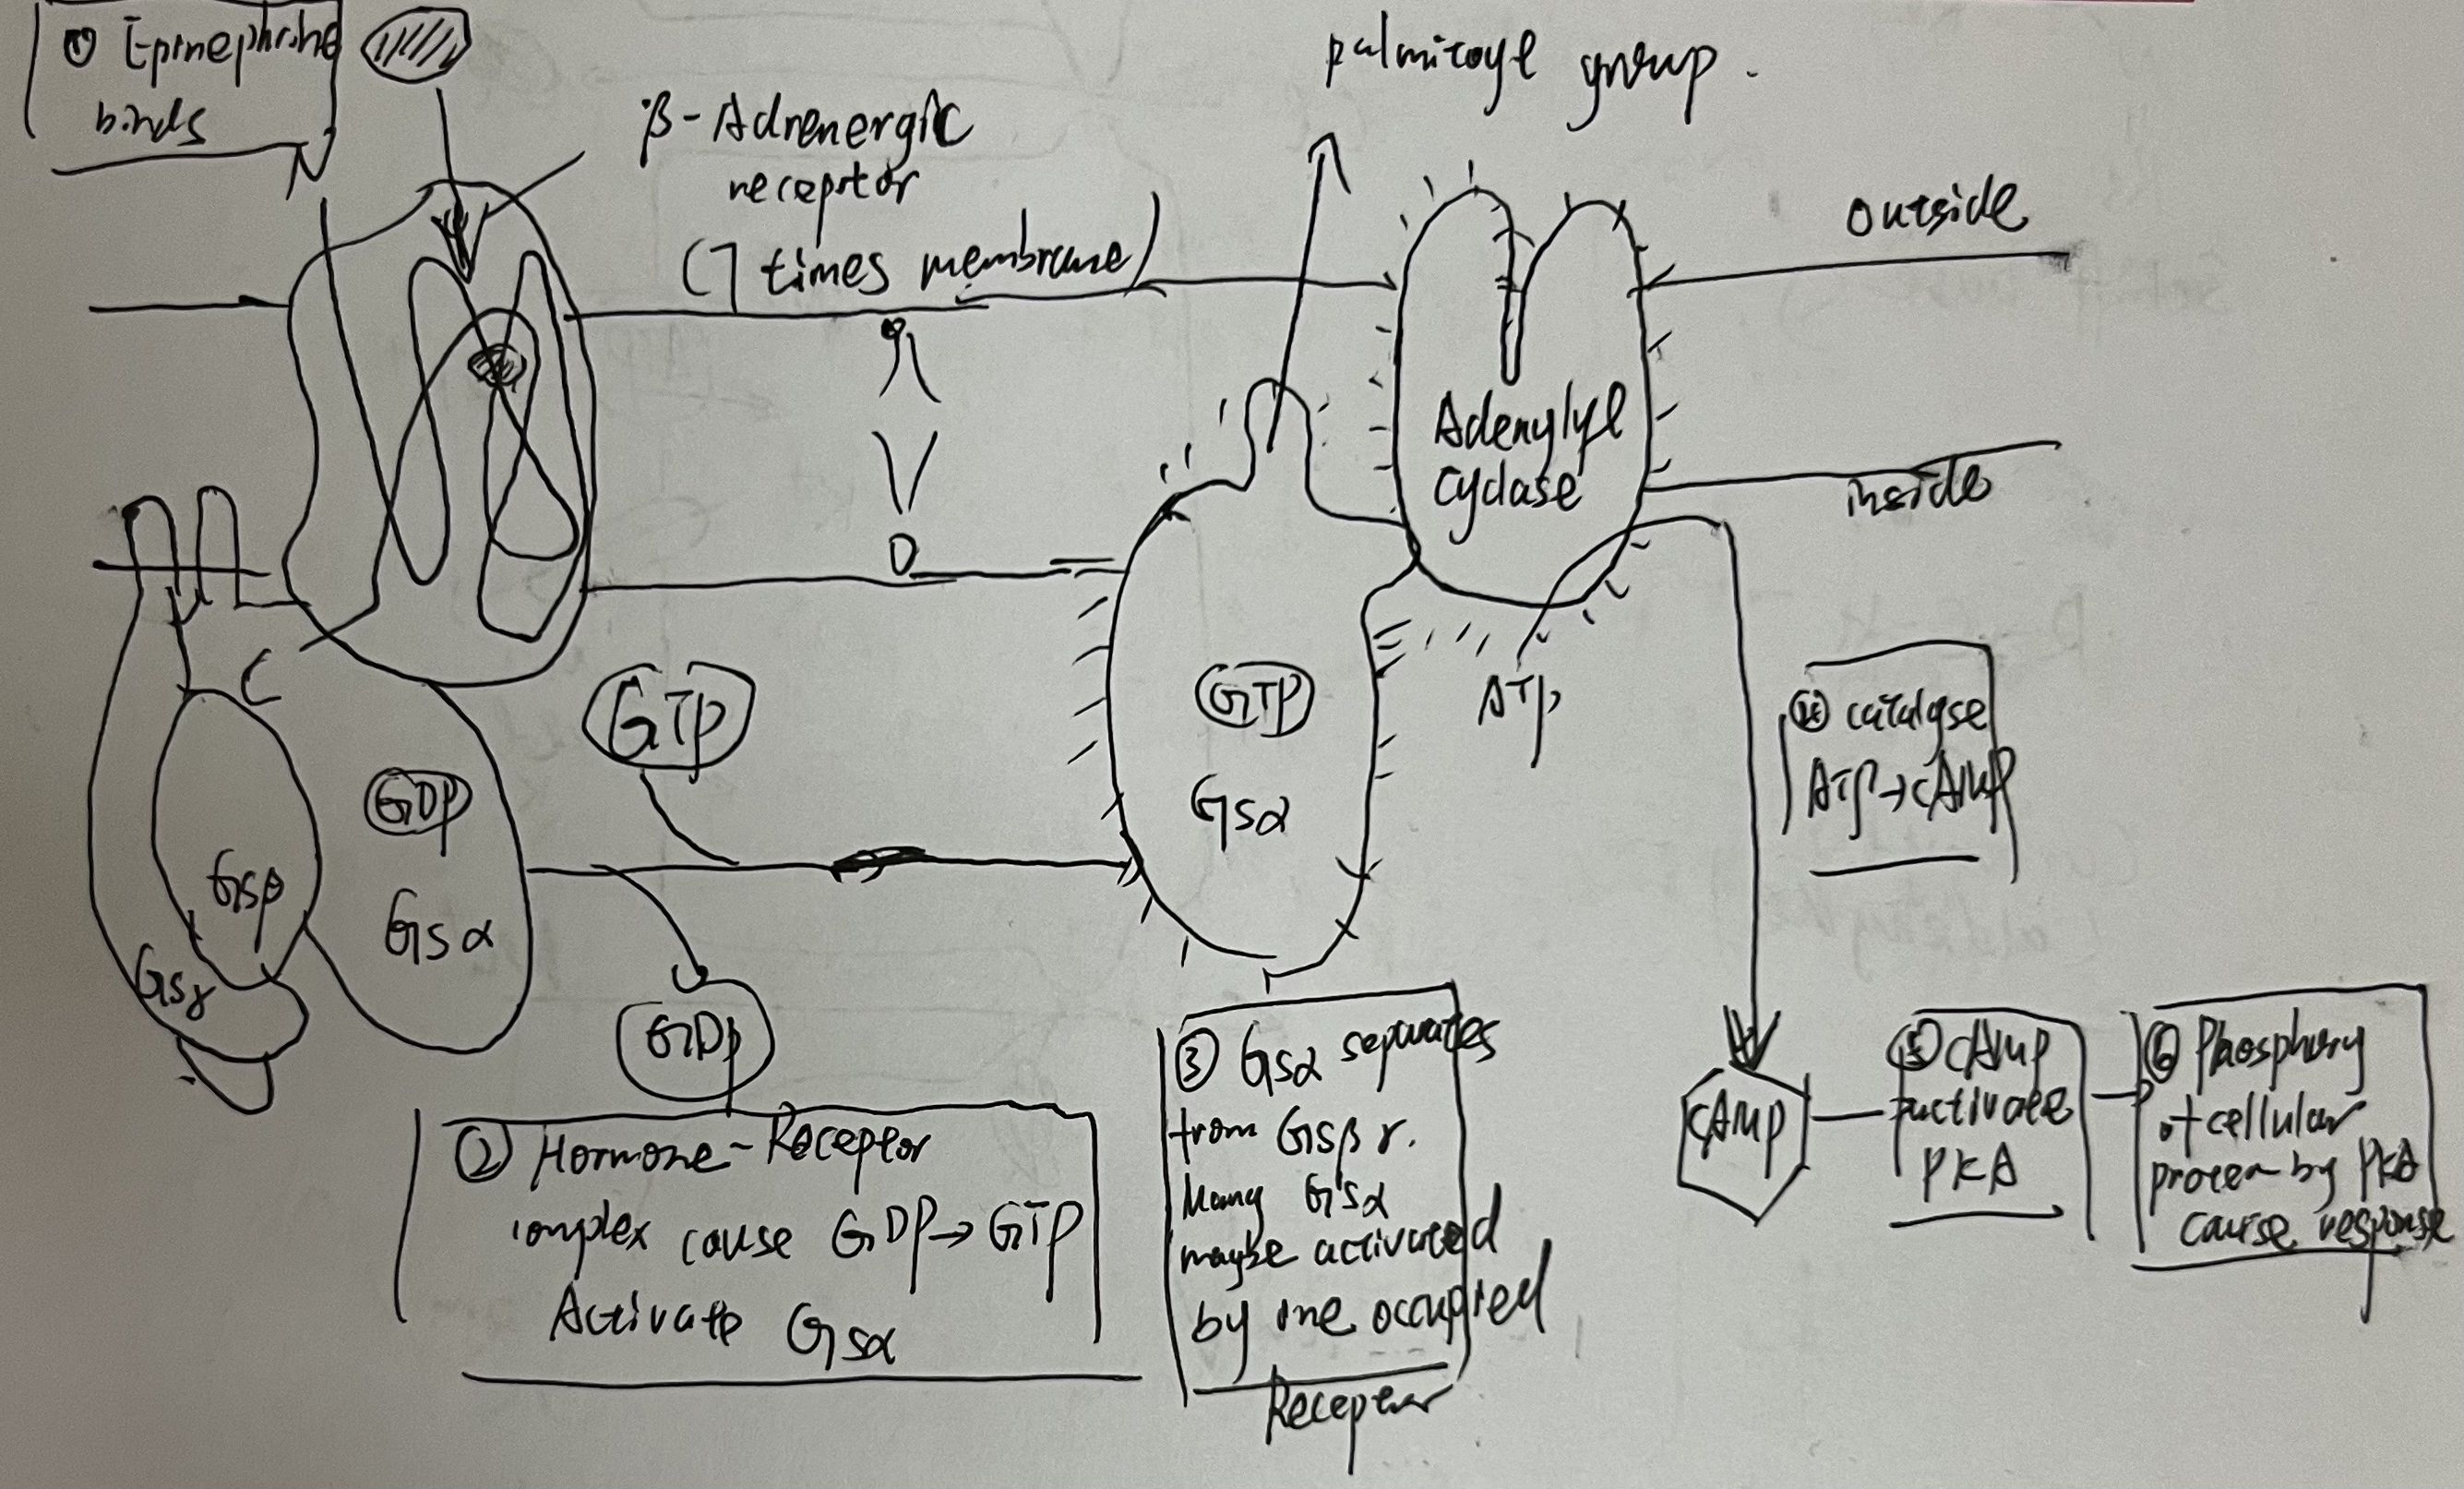 ① Epinephrine
binds
N
β-Adrenergic
receptor
(7 times membrane)
palmitoyl group.
outside
Adenylyl
cyclase
inside
C
GTP
GDP
Gsβ
Gsα
Gsγ
GDP
GTP
Gsα
ATP
④ catalyse
ATP→cAMP
② Hormone-Receptor
complex cause GDP→GTP
Activate Gsα
③ Gsα separates
from Gsβγ.
Many Gsα
maybe activated
by one occupied
Receptor
cAMP
⑤ cAMP
activate
PKA
⑥ Phosphory
of cellular
protein by PKA
cause response